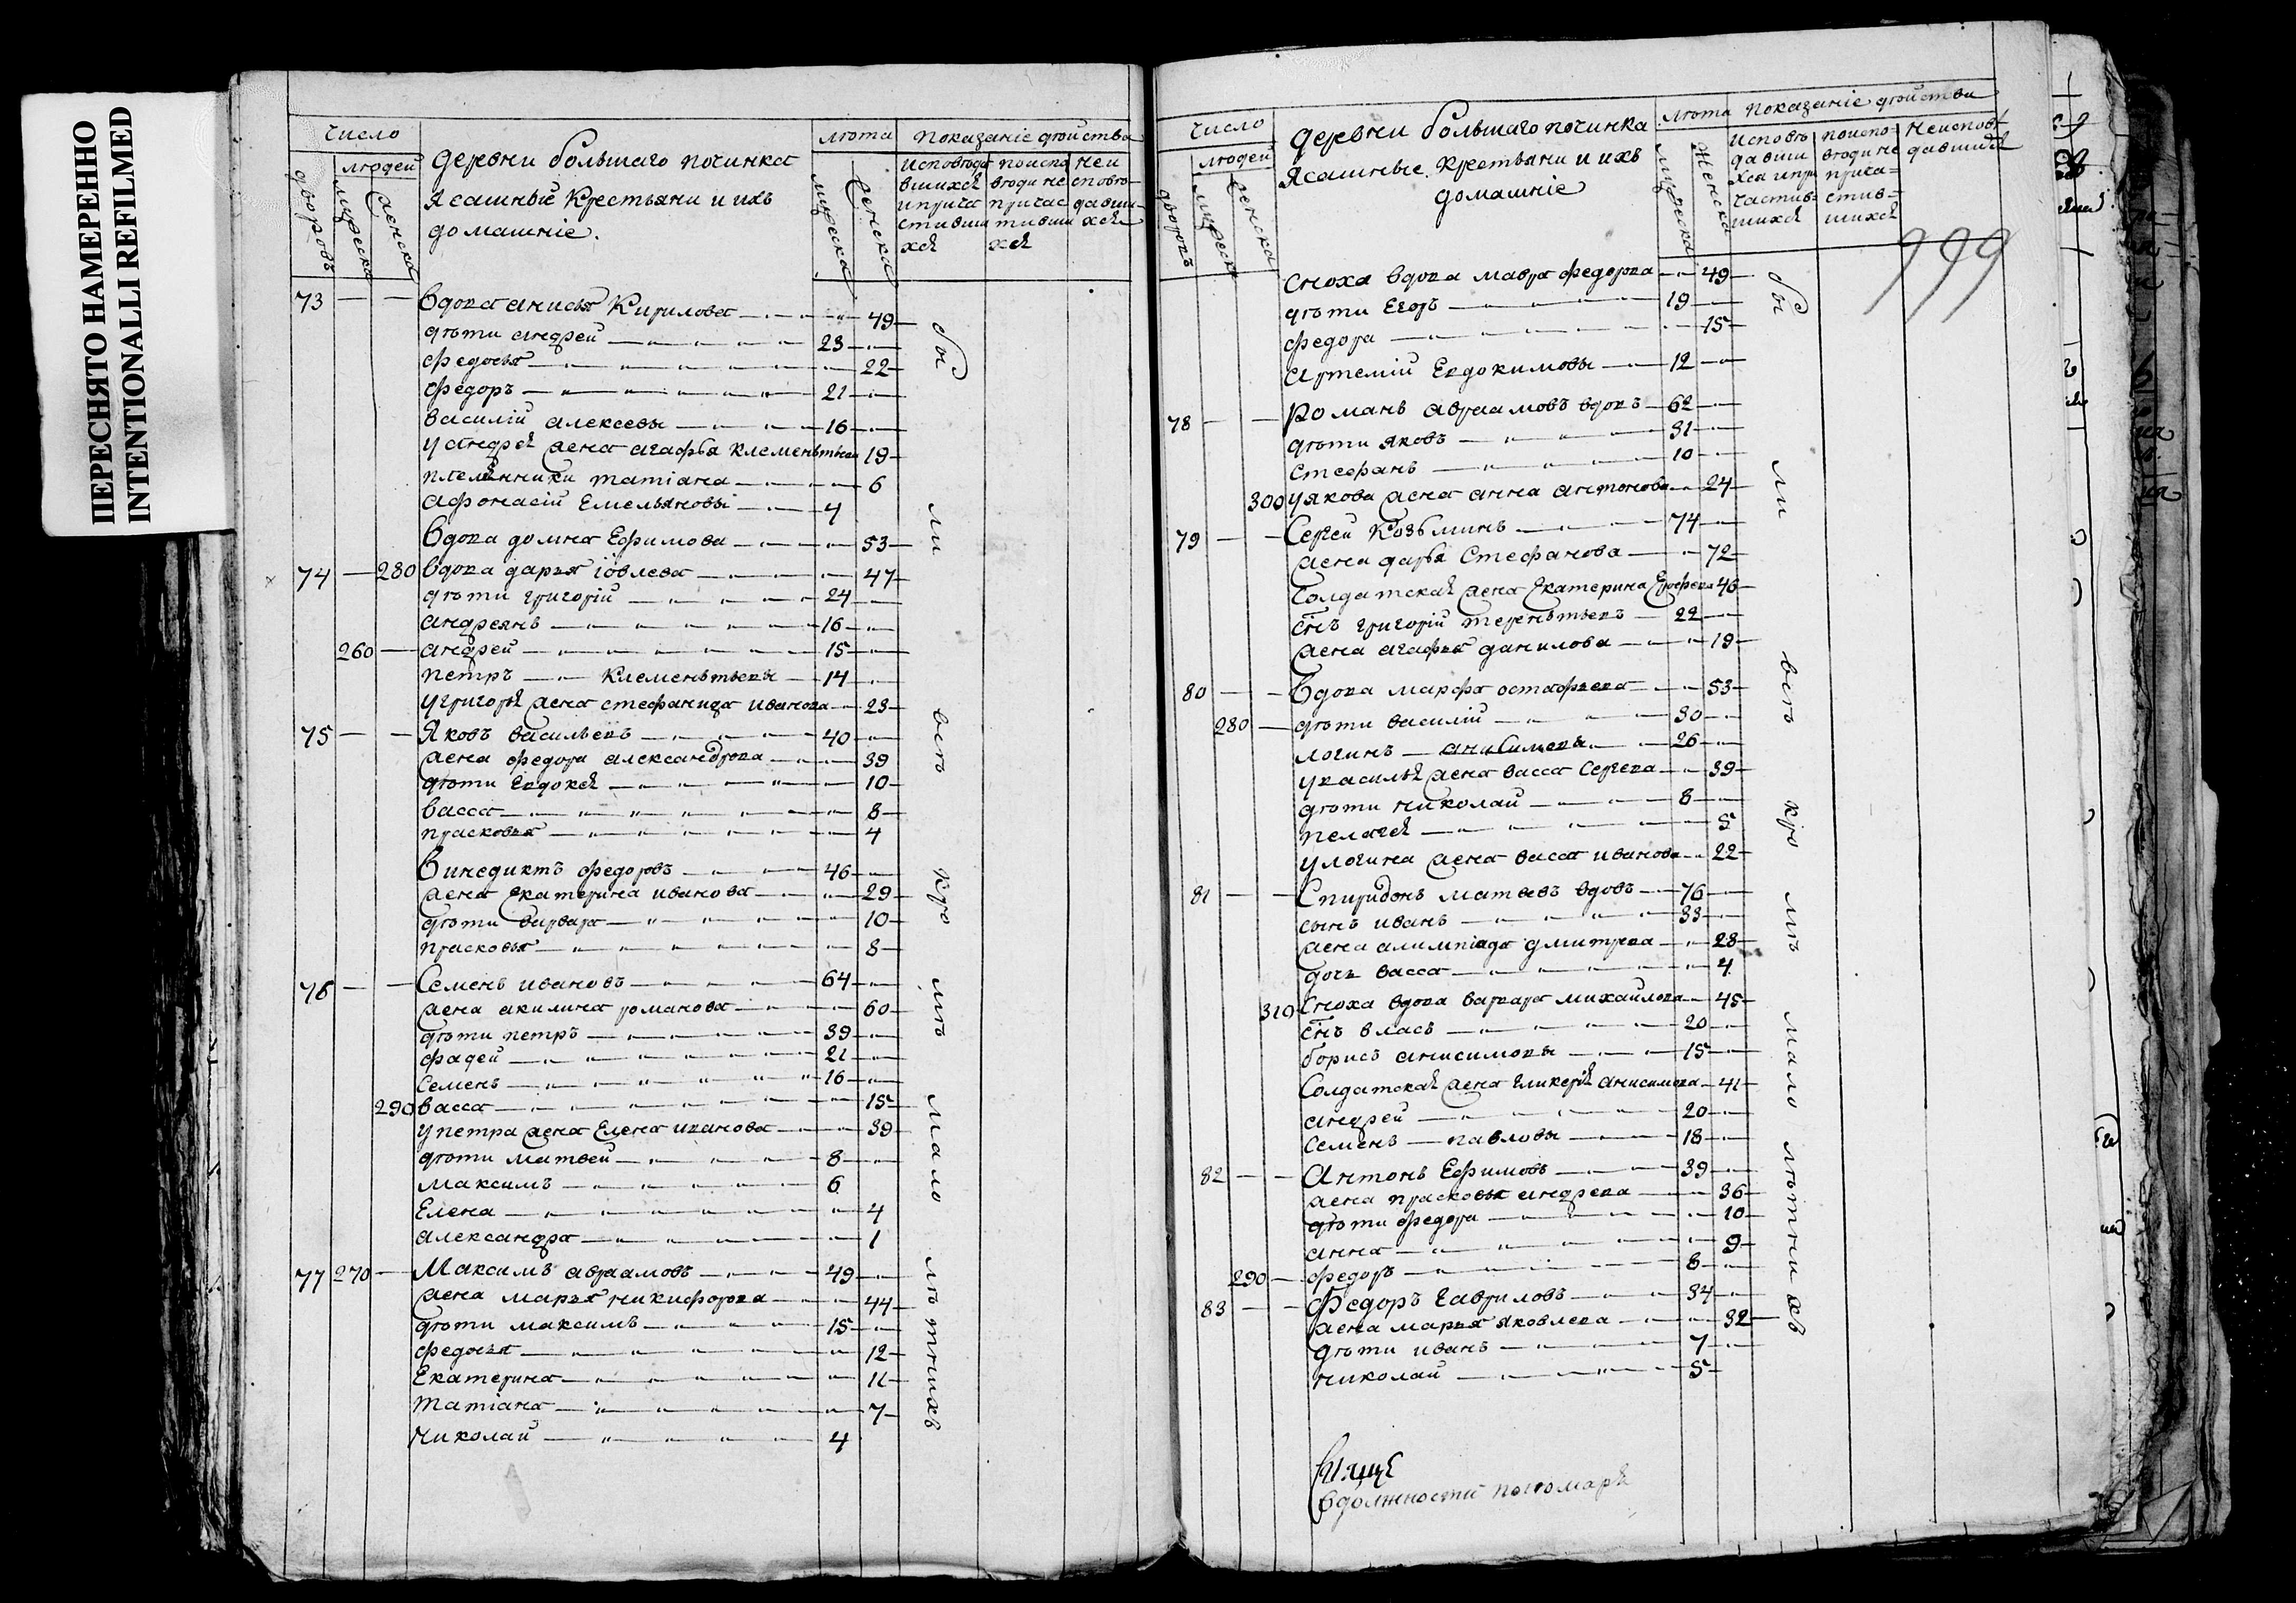 ПЕРЕСНЯТО НАМЕРЕННО
INTENTIONALLI REFILMED
Число
людей
дворовъ
мужеска
женска
деревни большаго починка
Ясашные Крестьяни и ихъ
домашніе.
лѣта
мужеска
женска
Показаніе действа
исповеда
вшихся
и прича
стивши
хся
по испо
веди не
причас
тивши
хся
не и
спове
давши
хся
73 — — Вдова анисья Кирилова 49
дѣти андрей 23
федосья 22
федоръ 21
василій алексеевы 16
у андрея жена агафья клементьева 19
племянники татіана 6
афонасій Емельяновы 4
Вдова домна Ефимова 53
74 — 280 вдова дарья іовлева 47
дѣти григорій 24
андреянъ 16
260 — андрей 15
петръ Клементьевы 14
у григорья жена стефанида иванова 23
75 — — Яковъ васильевъ 40
жена федора александрова 39
дѣти Евдокея 10
васса 8
прасковья 4
Винедиктъ федоровъ 46
жена екатерина иванова 29
дѣти варвара 10
прасковья 8
76 — — Семенъ ивановъ 64
жена акилина романова 60
дѣти петръ 39
фадей 21
семенъ 16
290 васса 15
у петра жена Елена иванова 39
дѣти матвей 8
максимъ 6
Елена 4
александра 1
77 270 — Максимъ аврамовъ 49
жена марья никифорова 44
дѣти максимъ 15
федосья 12
Екатерина 11
татіана 7
николай 4
бы
ли
всѣ
кро
мѣ
мало
лѣтнихъ
Число
людей
дворовъ
мужеск
женска
деревни большаго починка
Ясашные крестьяни и ихъ
домашніе
лѣта
мужеска
женска
Показаніе действа
исповѣ
давши
хся и при
частив
шихся
по испо
веди не
прича=
стив=
шихся
не испове
давшихся
999
сноха вдова мавра федорова 49
дѣти Егоръ 19
федора 15
артемій Евдокимовы 12
78 — — Романъ авраамовъ вдовъ 62
дѣти яковъ 31
стефанъ 10
300 у якова жена анна антонова 24
79 — — Сергей Козьминъ 74
жена дарья Стефанова 72
Солдатская жена Екатерина Ерофеева 46
снъ григорій терентьевъ 22
жена агафья данилова 19
80 — — Вдова марфа остафьева 53
280 — дѣти василій 30
логинъ анисимовы 26
у василья жена васса Сергеева 39
дѣти николай 8
пелагея 5
у логина жена васса иванова 22
81 — — Спиридонъ матвевъ вдовъ 76
сынъ иванъ 33
жена алимпіада дмитрева 28
дочь васса 4
310 Сноха вдова варвара михайлова 45
снъ власъ 20
борисъ анисимовы 15
Солдатская жена гликерія анисимова 41
андрей 20
семенъ павловы 18
82 — — Антонъ Ефимовъ 39
жена прасковья андреева 36
дѣти федора 10
анна 9
290 — федоръ 8
83 — — Федоръ Гавриловъ 34
жена марья яковлева 32
дѣти иванъ 7
николай 5
бы
ли
всѣ
кро
мѣ
мало
лѣтнихъ
в должности пономаря